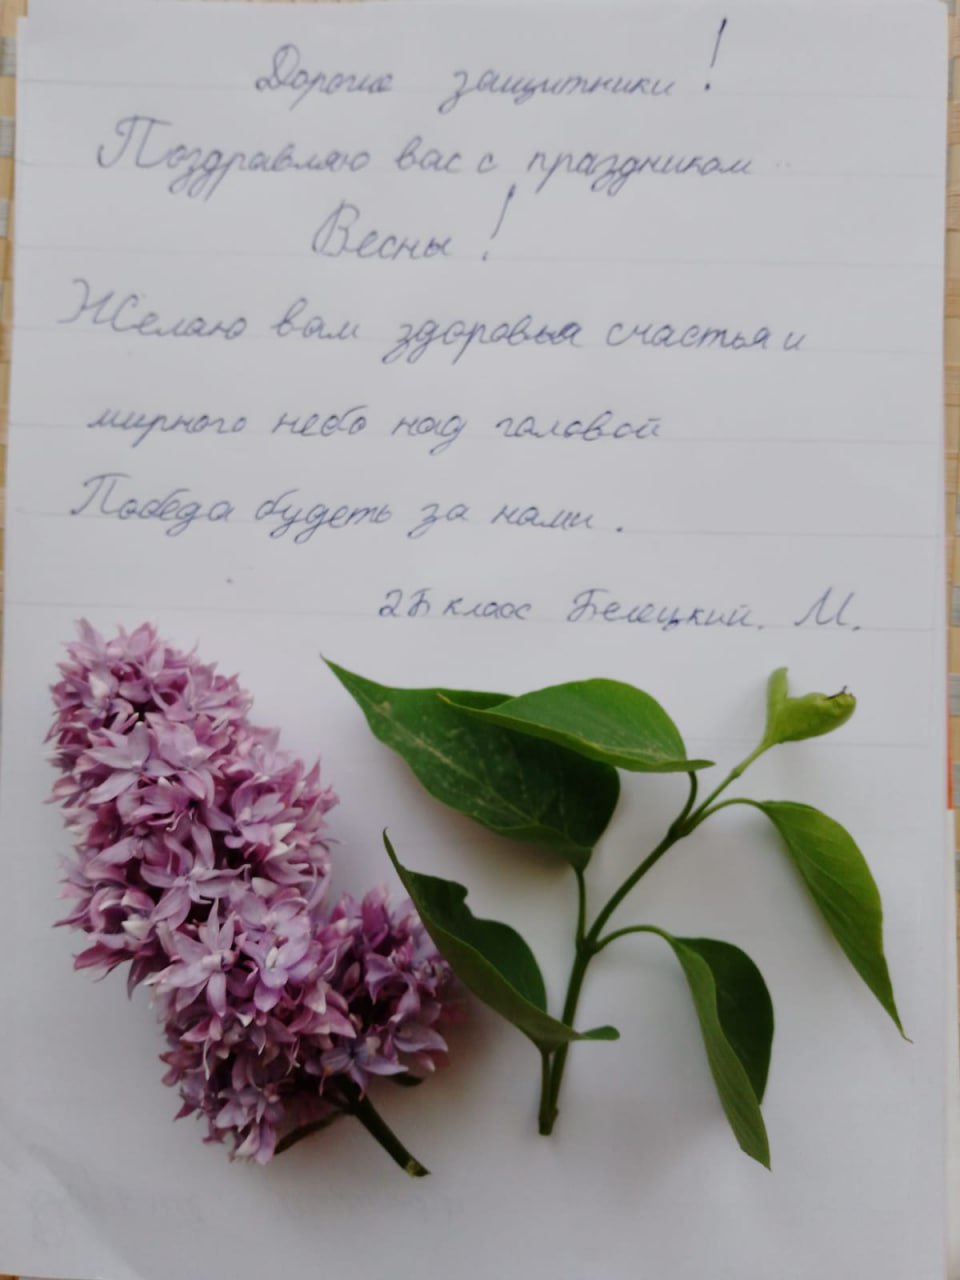 Дорогие защитники!
Поздравляю вас с праздником
Весны!
Желаю вам здоровья счастья и
мирного небо над головой
Победа будеть за нами.
2Б класс Белецкий. М.